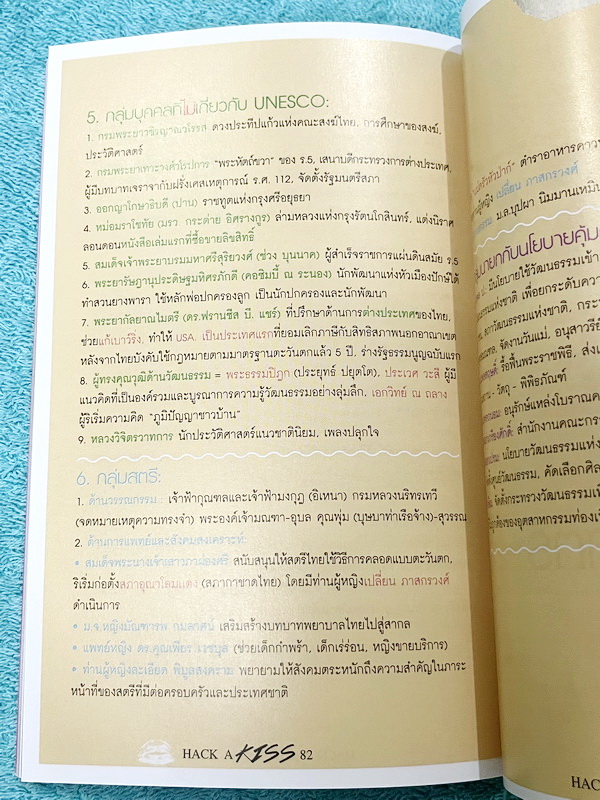 5. กลุ่มบุคคลที่ไม่เกี่ยวกับ UNESCO:
1. กรมพระยาวชิรญาณวโรรส ดวงประทีปแก้วแห่งคณะสงฆ์ไทย, การศึกษาของสงฆ์,
ประวัติศาสตร์
2. กรมพระยาเทวะวงศ์วโรปการ "พระหัตถ์ขวา" ของ ร.5, เสนาบดีกระทรวงการต่างประเทศ,
ผู้มีบทบาทเจรจากับฝรั่งเศสเหตุการณ์ ร.ศ. 112, จัดตั้งรัฐมนตรีสภา
3. ออกญาโกษาธิบดี (ปาน) ราชทูตแห่งกรุงศรีอยุธยา
4. หม่อมราโชทัย (มรว. กระต่าย อิศรางกูร) ล่ามหลวงแห่งกรุงรัตนโกสินทร์, แต่งนิราศ
ลอนดอนหนังสือเล่มแรกที่ซื้อขายลิขสิทธิ์
5. สมเด็จเจ้าพระยาบรมมหาศรีสุริยวงศ์ (ช่วง บุนนาค) ผู้สำเร็จราชการแผ่นดินสมัย ร.5
6. พระยารัษฎานุประดิษฐมหิศรภักดี (คอซิมบี้ ณ ระนอง) นักพัฒนาแห่งหัวเมืองปักษ์ใต้
ทำสวนยางพารา ใช้หลักพ่อปกครองลูก เป็นนักปกครองและนักพัฒนา
7. พระยากัลยาณไมตรี (ดร.ฟรานซีส บี. แซร์) ที่ปรึกษาด้านการต่างประเทศของไทย,
ช่วยแก้เบาว์ริง, ทำให้ USA. เป็นประเทศแรกที่ยอมเลิกภาษีกับสิทธิสภาพนอกอาณาเขต
หลังจากไทยบังคับใช้กฎหมายตามมาตรฐานตะวันตกแล้ว 5 ปี, ร่างรัฐธรรมนูญฉบับแรก
8. ผู้ทรงคุณวุฒิด้านวัฒนธรรม = พระธรรมปิฎก (ประยุทธ์ ปยุตโต), ประเวศ วะสี ผู้มี
แนวคิดที่เป็นองค์รวมและบูรณาการความรู้วัฒนธรรมอย่างลุ่มลึก, เอกวิทย์ ณ ถลาง
ผู้ริเริ่มความคิด "ภูมิปัญญาชาวบ้าน"
9. หลวงวิจิตรวาทการ นักประวัติศาสตร์แนวชาตินิยม, เพลงปลุกใจ
6. กลุ่มสตรี:
1. ด้านวรรณกรรม : เจ้าฟ้ากุณฑลและเจ้าฟ้ามงกุฎ (อิเหนา) กรมหลวงนรินทรเทวี
(จดหมายเหตุความทรงจำ) พระองค์เจ้ามณฑา-อุบล คุณพุ่ม (บุษบาท่าเรือจ้าง)-สุวรรณ
2. ด้านการแพทย์และสังคมสงเคราะห์:
• สมเด็จพระนางเจ้าเสาวภาผ่องศรี สนับสนุนให้สตรีไทยใช้วิธีการคลอดแบบตะวันตก,
ริเริ่มก่อตั้งสภาอุณาโลมแดง (สภากาชาดไทย) โดยมีท่านผู้หญิงเปลี่ยน ภาสกรวงศ์
ดำเนินการ
• ม.จ.หญิงมัณฑารพ กมลาศน์ เสริมสร้างบทบาทพยาบาลไทยไปสู่สากล
• แพทย์หญิง ดร.คุณเพียร เวชบุล (ช่วยเด็กกำพร้า, เด็กเร่ร่อน, หญิงขายบริการ)
• ท่านผู้หญิงละเอียด พิบูลสงคราม พยายามให้สังคมตระหนักถึงความสำคัญในภาระ
หน้าที่ของสตรีที่มีต่อครอบครัวและประเทศชาติ
HACK A KISS 82
ตำราอาหารคาว
เปลี่ยน ภาสกรวงศ์
ม.ล.บุปผา นิมมานเหมิน
มีนโยบายใช้วัฒนธรรมเข้า
จัดงานวันแม่, อนุสาวรีย์
รื้อฟื้นพระราชพิธี, ส่งเ
วัตถุ - พิพิธภัณฑ์
อนุรักษ์แหล่งโบราณค
สำนักงานคณะกร
นโยบายวัฒนธรรมแห่ง
คัดเลือกศิล
จัดตั้งกระทรวงวัฒนธรรมเ
ของอุตสาหกรรมท่องเ
HAC